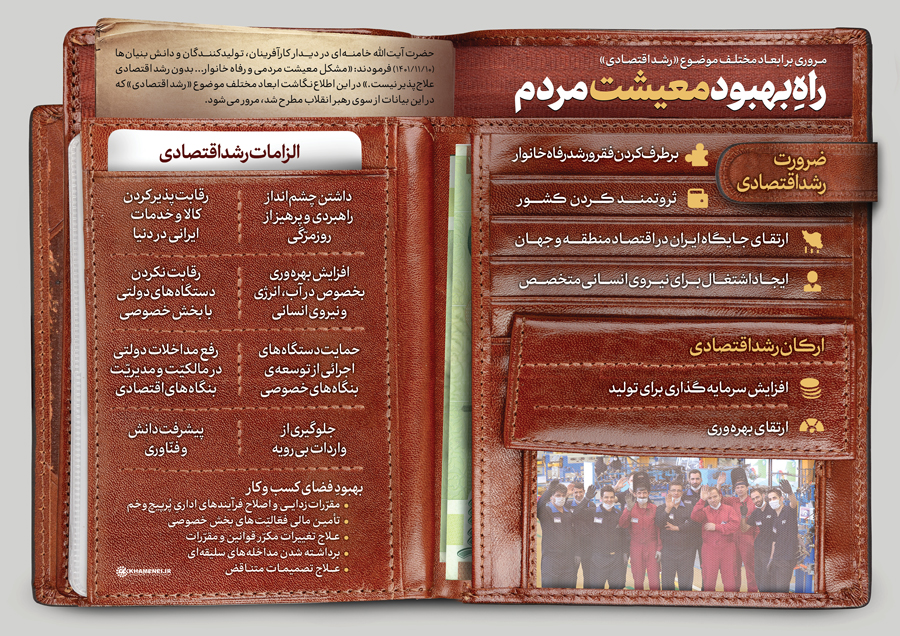 مروری بر ابعاد مختلف موضوع «رشد اقتصادی»
راهِ بهبود معیشت مردم
حضرت آیت‌الله خامنه‌ای در دیدار کارآفرینان، تولیدکنندگان و دانش بنیان‌ها
(۱۴۰۱/۱۱/۱۰) فرمودند: «مشکل معیشت مردمی و رفاه خانوار... بدون رشد اقتصادی
علاج‌پذیر نیست.» در این اطلاع‌نگاشت ابعاد مختلف موضوع «رشد اقتصادی» که
در این بیانات از سوی رهبر انقلاب مطرح شد، مرور می‌شود.
ضرورت
رشد اقتصادی
برطرف کردن فقر و رشد رفاه خانوار
ثروتمند کردن کشور
ارتقای جایگاه ایران در اقتصاد منطقه و جهان
ایجاد اشتغال برای نیروی انسانی متخصص
ارکان رشد اقتصادی
افزایش سرمایه‌گذاری برای تولید
ارتقای بهره‌وری
الزامات رشد اقتصادی
داشتن چشم‌انداز
راهبردی و پرهیز از
روزمرّگی
رقابت‌پذیر کردن
کالا و خدمات
ایرانی در دنیا
افزایش بهره‌وری
بخصوص در آب، انرژی
و نیروی انسانی
رقابت نکردن
دستگاه‌های دولتی
با بخش خصوصی
حمایت دستگاه‌های
اجرائی از توسعه‌ی
بنگاه‌های خصوصی
رفع مداخلات دولتی
در مالکیّت و مدیریّت
بنگاه‌های اقتصادی
جلوگیری از
واردات بی‌رویه
پیشرفت دانش
و فنّاوری
بهبود فضای کسب و کار
• مقرّرات‌زدایی و اصلاح فرآیندهای اداری پُرپیچ‌وخم
• تأمین مالی فعّالیّت‌های بخش خصوصی
• علاج تغییرات مکرّر قوانین و مقرّرات
• برداشته شدن مداخله‌های سلیقه‌ای
• علاج تصمیمات متناقض
KHAMENEI.IR